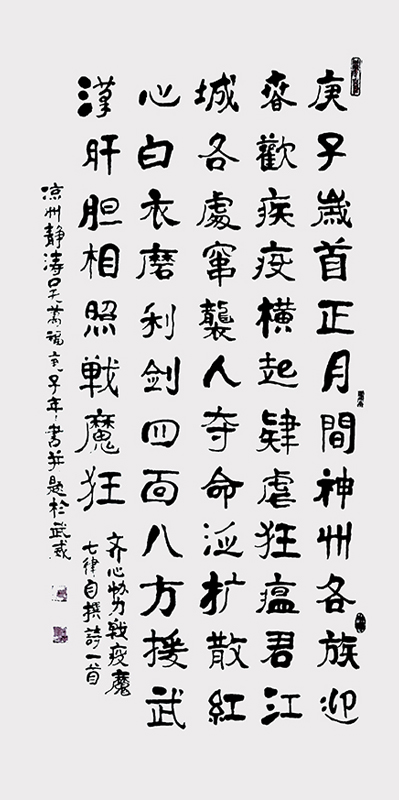 庚子歲首正月間神州各族迎
春歡疾疫橫起肆虐狂瘟君江
城各處窜襲人夺命泛扩散紅
心白衣磨利剑四面八方援武
漢肝胆相照戦魔狂
齐心协力戰疫魔
七律自撰詩一首
凉州静涛吴萬福庚子年書并题於武威